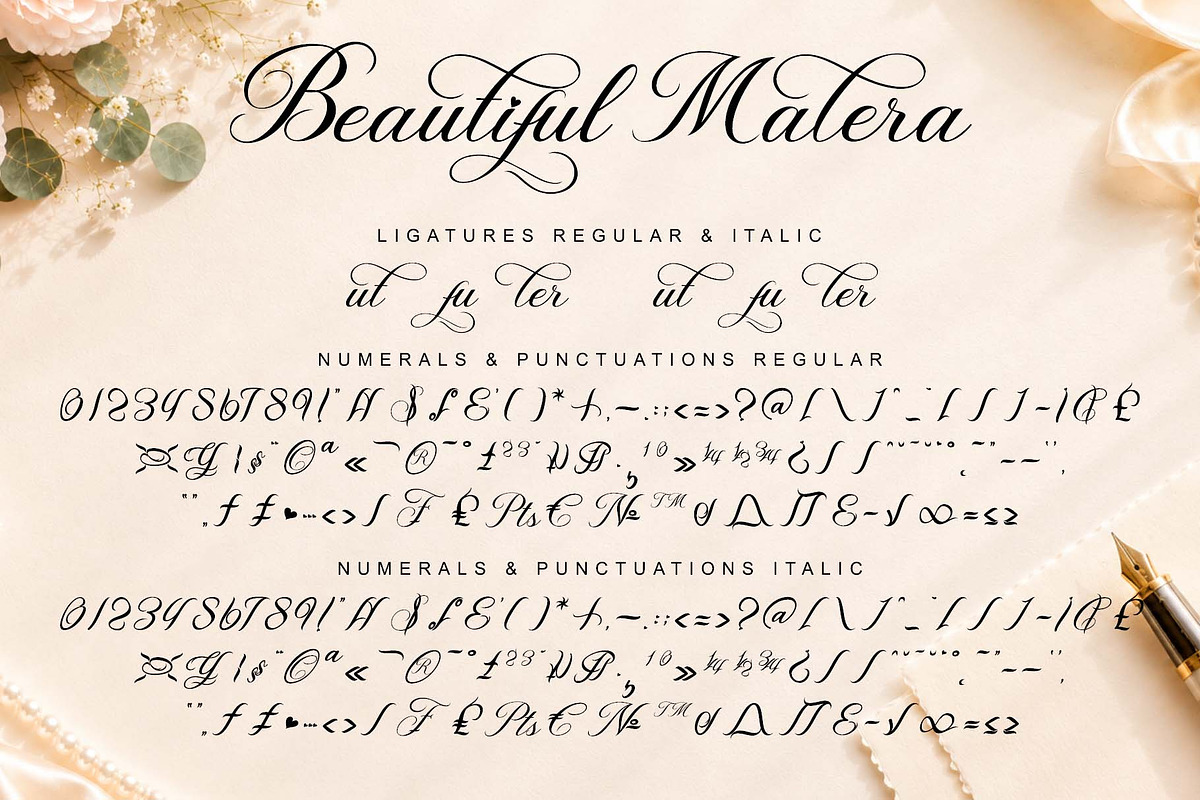 Beautiful Matera
LIGATURES REGULAR & ITALIC
ut fu ter ut fu ter
NUMERALS & PUNCTUATIONS REGULAR
0123456789!"#$%&'()*+,-.:;<=>?@[\]^_`{|}~¡¢£
¤¥¦§¨©ª«¬®¯°±²³´µ¶·¸¹º»¼½¾¿
„ƒ‡•…‹›⁄₣₤₧€№™∂∆∏∑−√∞≈≤≥
NUMERALS & PUNCTUATIONS ITALIC
0123456789!"#$%&'()*+,-.:;<=>?@[\]^_`{|}~¡¢£
¤¥¦§¨©ª«¬®¯°±²³´µ¶·¸¹º»¼½¾¿
„ƒ‡•…‹›⁄₣₤₧€№™∂∆∏∑−√∞≈≤≥